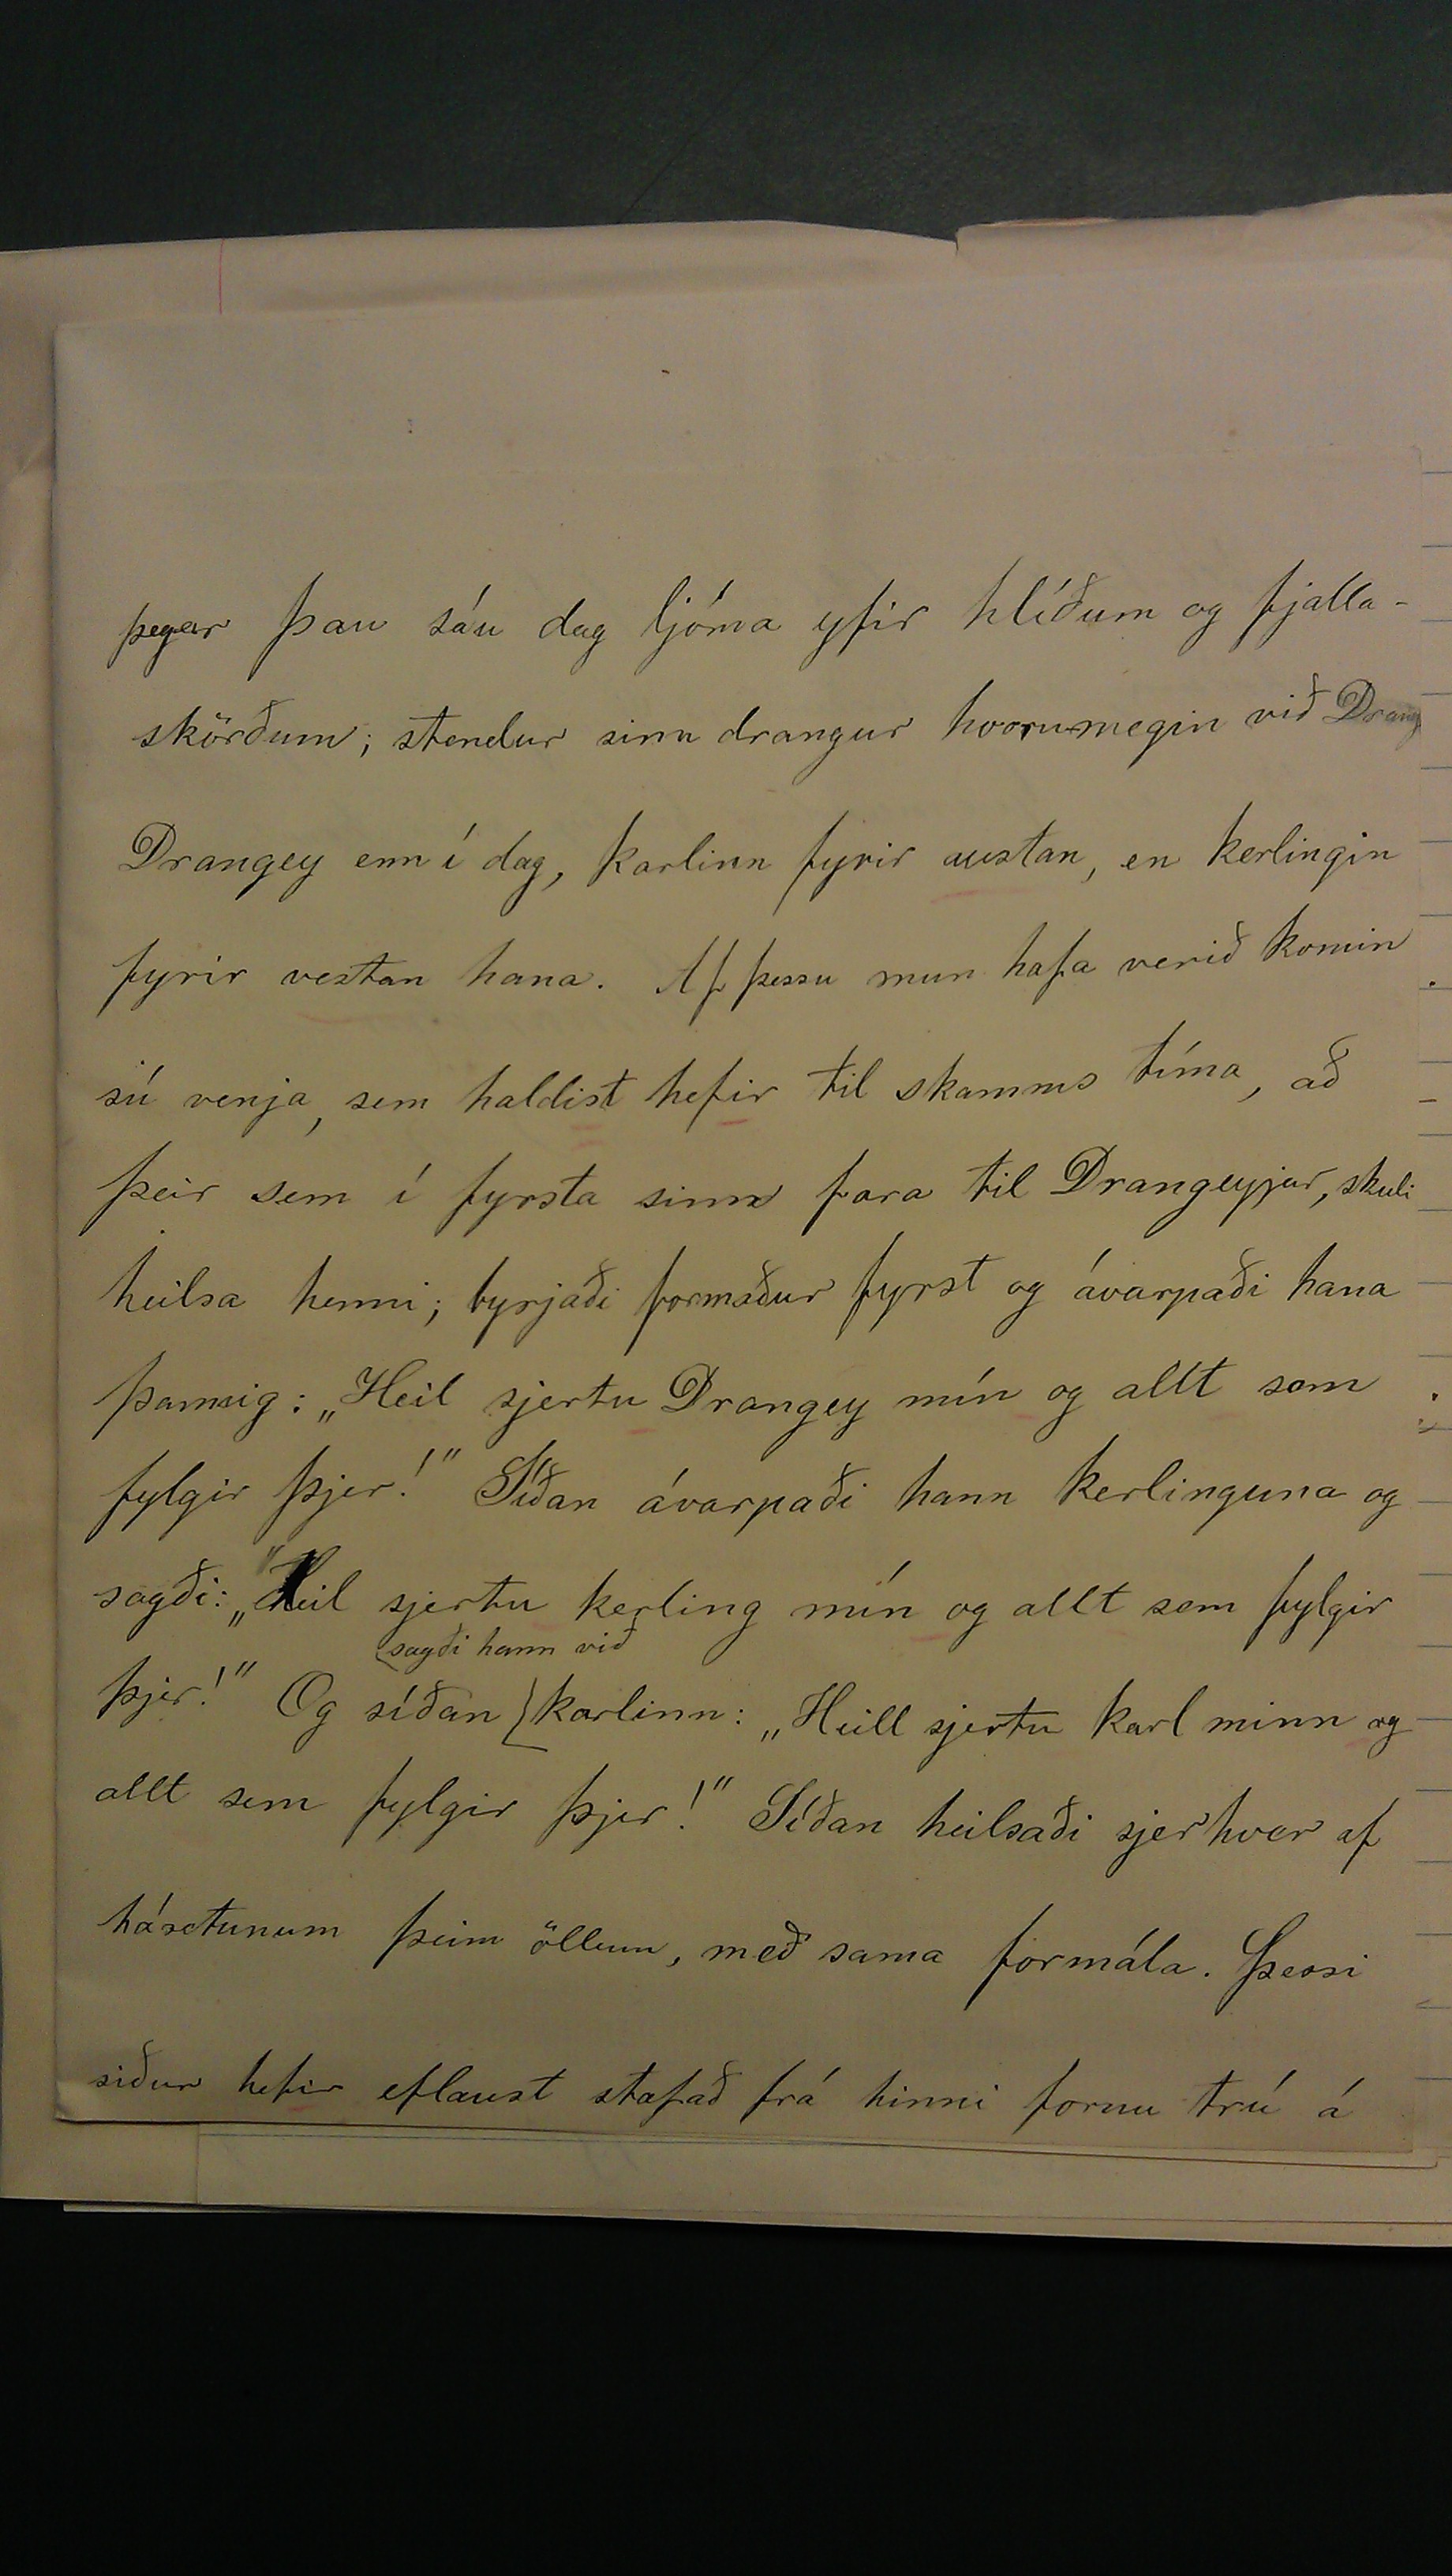 þegar þau sáu dag ljóma yfir hlíðum og fjalla-
skörðum; stendur sinn drangur hvorumegin við Drang
Drangey enn í dag, karlinn fyrir austan, en kerlingin
fyrir vestan hana. Af þessu mun hafa verið komin
sú venja, sem haldist hefir til skamms tíma, að
þeir sem í fyrsta sinn fara til Drangeyjar, skuli
heilsa henni; byrjaði formaður fyrst og ávarpaði hana
þannig: „Heil sjertu Drangey mín og allt sem
fylgir þjer!" Síðan ávarpaði hann kerlinguna og
sagði: „Heil sjertu kerling mín og allt sem fylgir
sagði hann við
þjer!" Og síðan karlinn: „Heill sjertu karl minn og
allt sem fylgir þjer!" Síðan heilsaði sjerhver af
hásetunum þeim öllum, með sama formála. Þessi
siður hefir eflaust stafað frá hinni fornu trú á